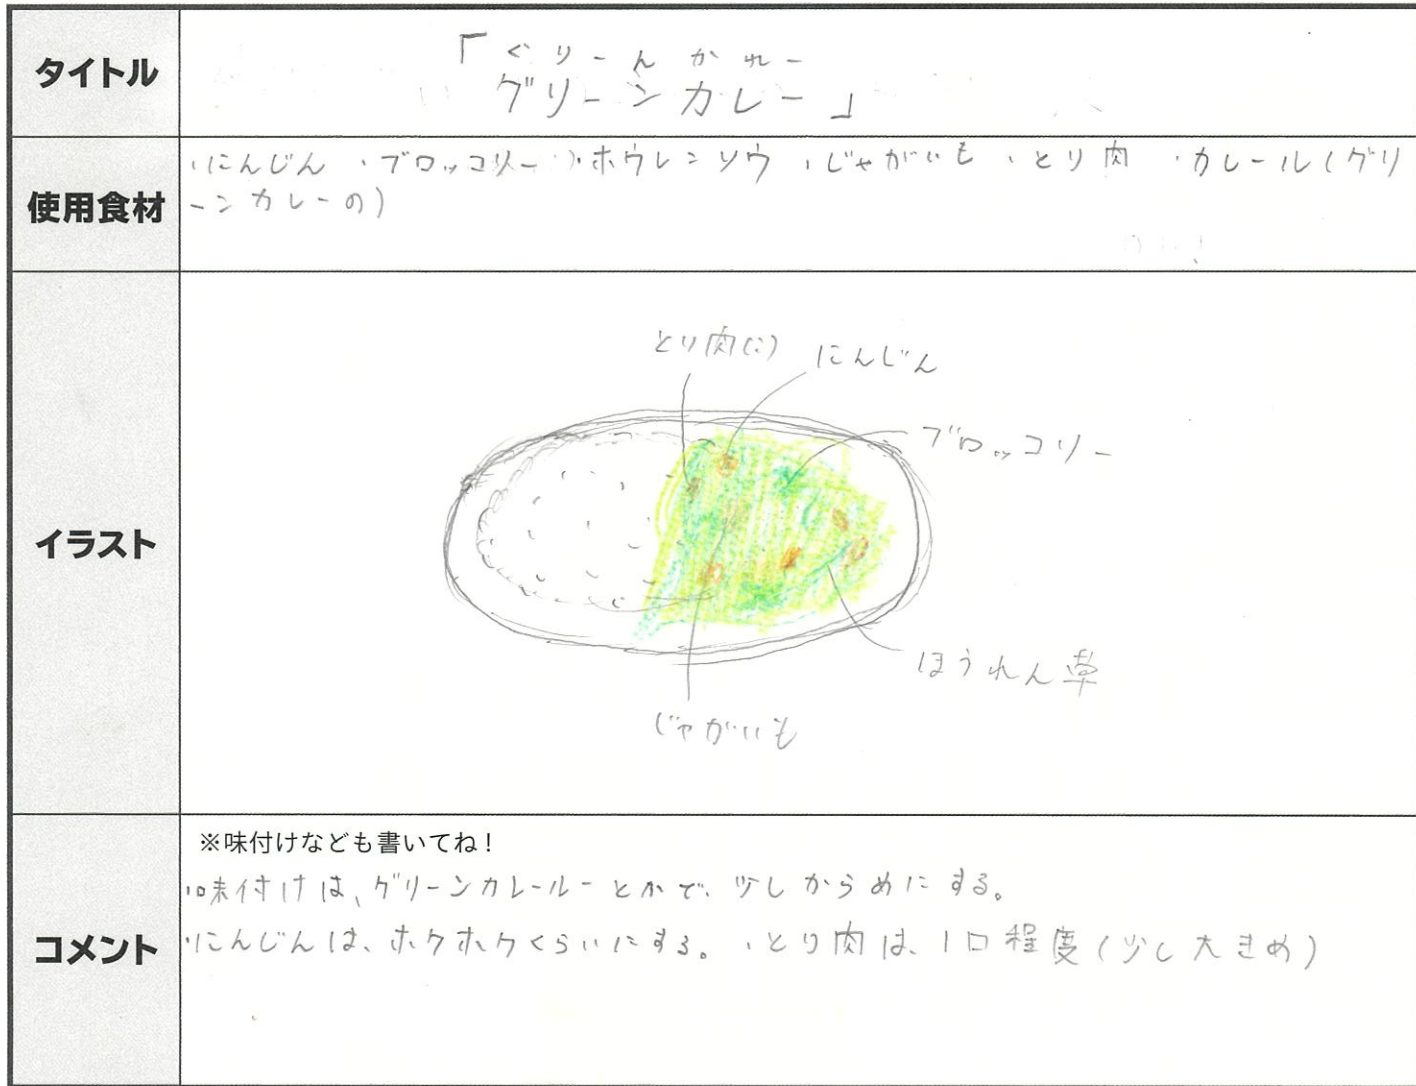 タイトル
ぐりーんかれー
「グリーンカレー」
使用食材
・にんじん ・ブロッコリー ・ホウレンソウ ・じゃがいも ・とり肉 ・カレール(グリ
ーンカレーの)
イラスト
とり肉
にんじん
ブロッコリー
ほうれん草
じゃがいも
コメント
※味付けなども書いてね!
・味付けは、グリーンカレールーとかで、少しからめにする。
・にんじんは、ホクホクくらいにする。 ・とり肉は、1口程度(少し大きめ)